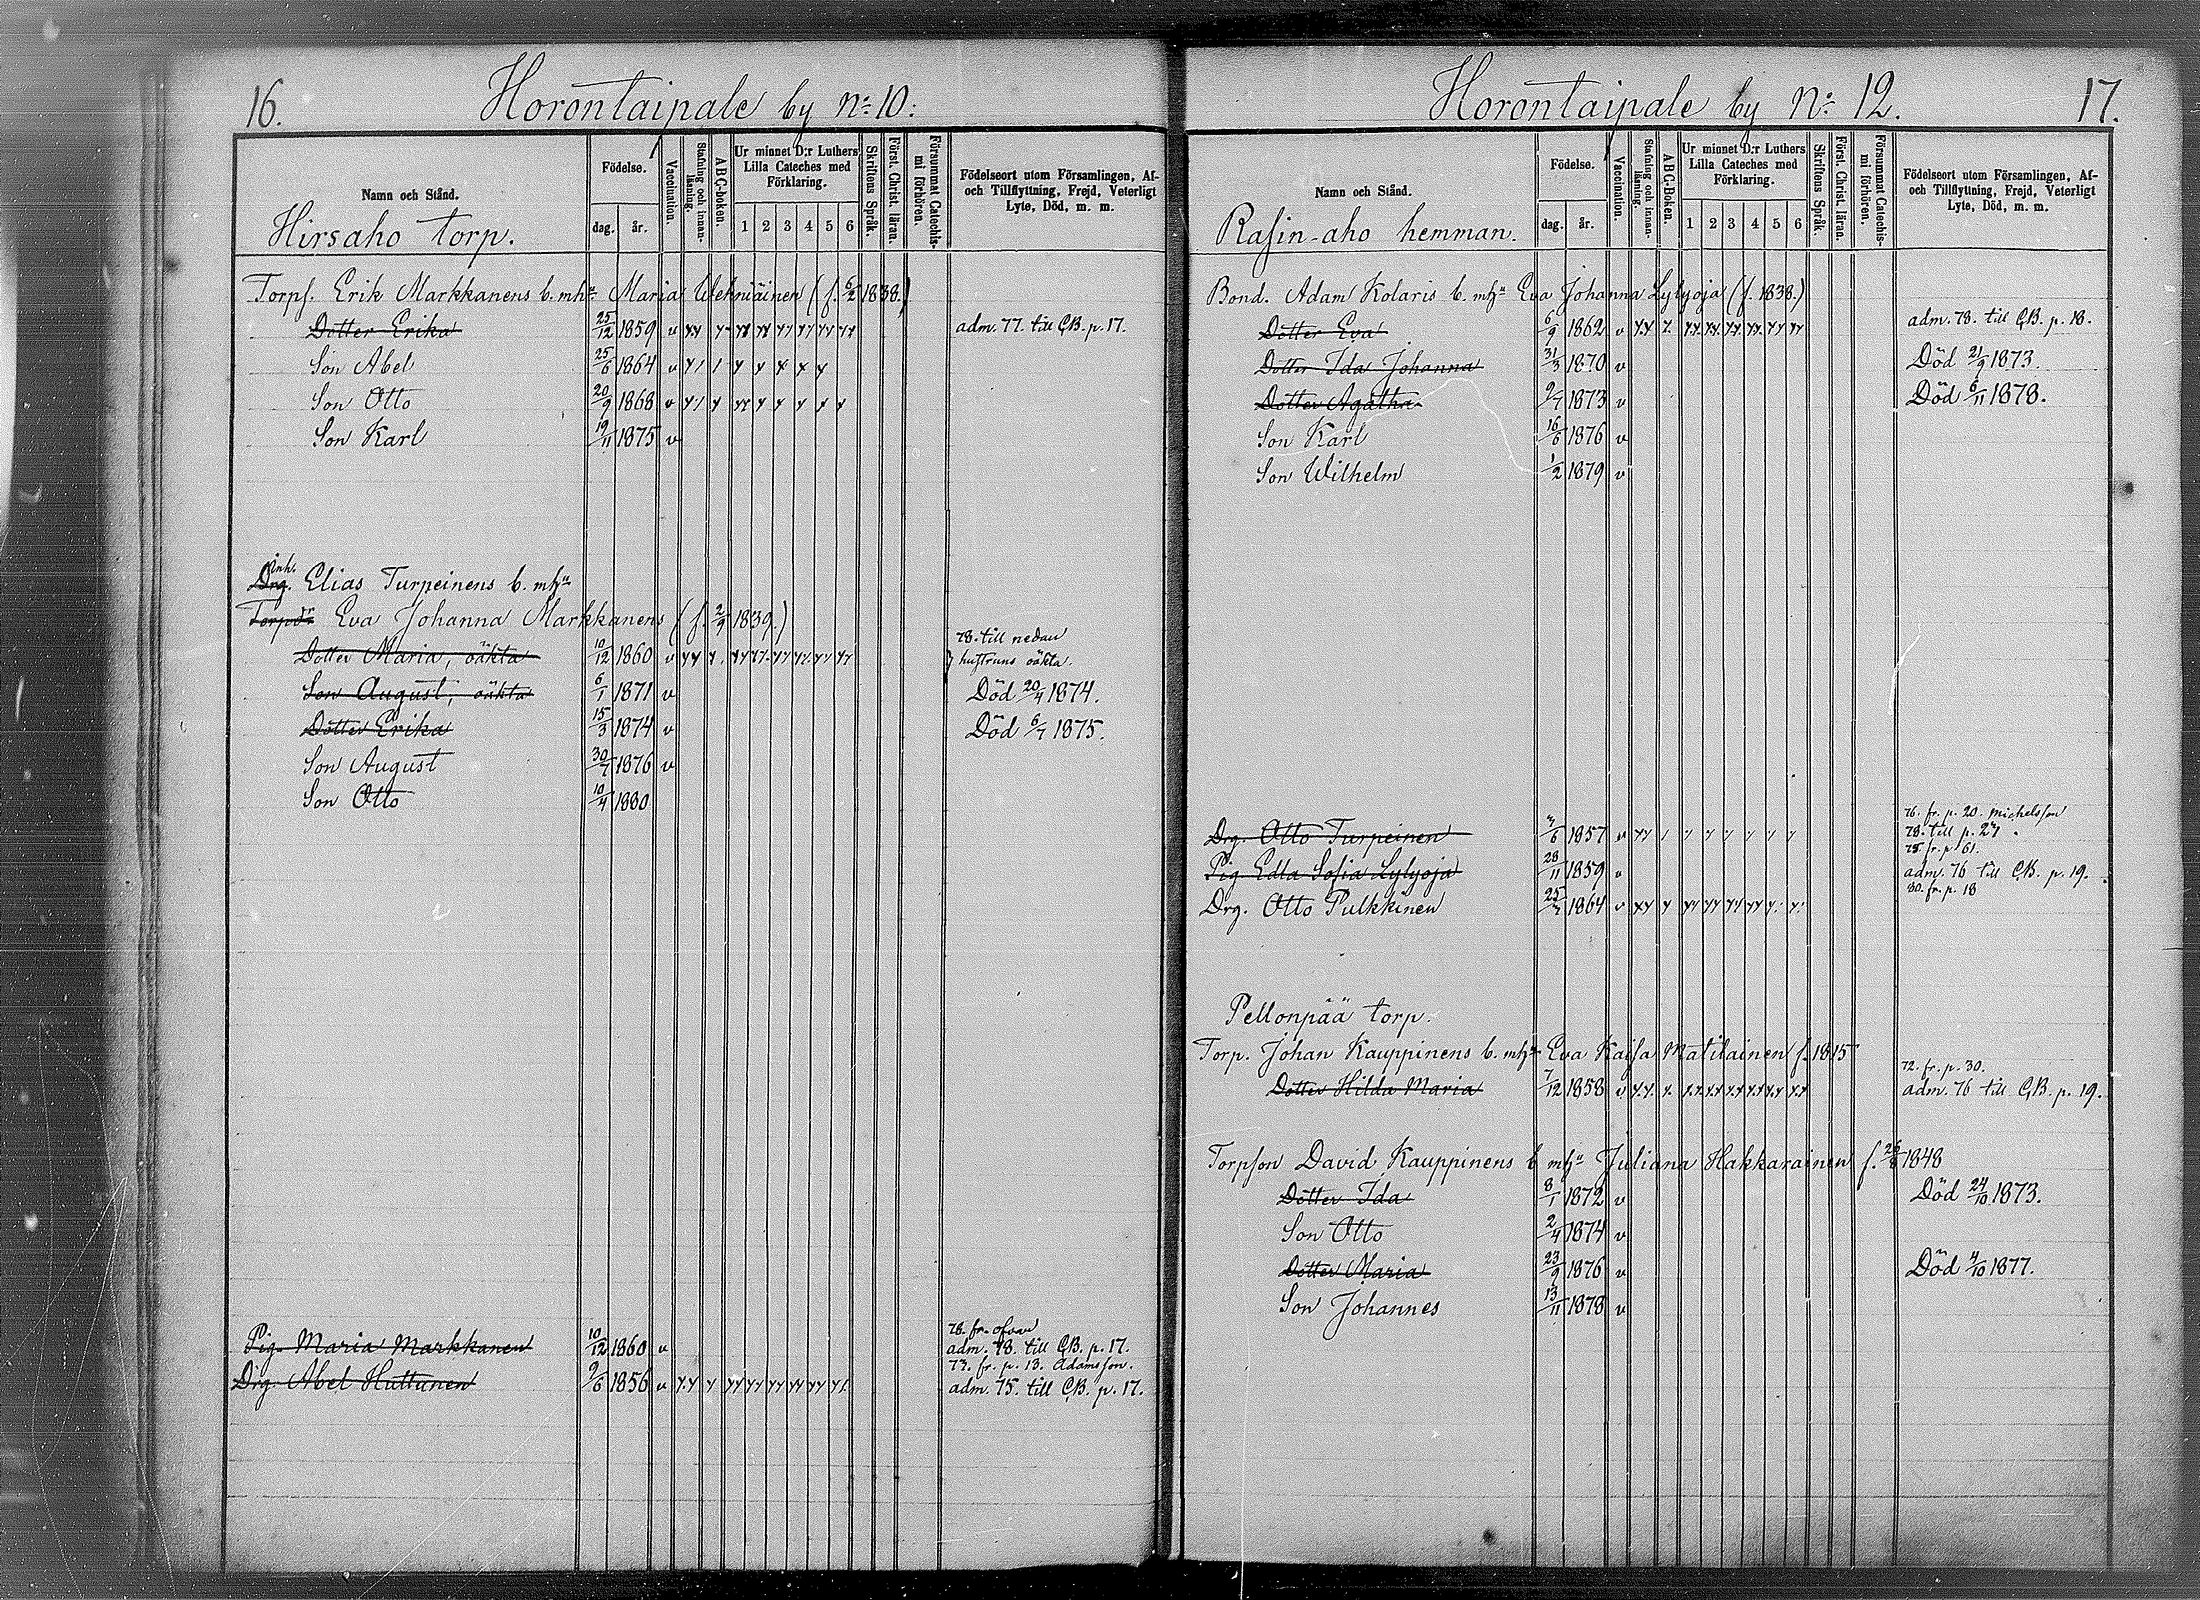 16.
Horontaipale by No 10.
Namn och Stånd.
Födelse.
dag. år.
Vaccination.
Stafning och innanläsning.
A B C-boken.
Ur minnet D:r Luthers Lilla Cateches med Förklaring.
1 2 3 4 5 6
Skriftens Språk.
Först. Christ. läran.
Försummat Catechismi förhören.
Födelseort utom Församlingen, Af- och Tillflyttning, Frejd, Veterligt Lyte, Död, m. m.
Hirsaho torp.
Torpf. Erik Markkanens b. m hu Maria Wehniäinen (f. 6/2 1838.)
Dotter Erika 25/12 1859 v adm. 77. till C.B. p. 17.
Son Abel 25/6 1864 v
Son Otto 20/9 1868 v
Son Karl 19/11 1875 v
inh.
Drg. Elias Turpeinens b. m hu
Torpdr Eva Johanna Markkanens (f. 2/9 1839.)
78. till nedan
Dotter Maria, oäkta 10/12 1860 v hustruns oäkta.
Son August, oäkta 6/1 1871 v Död 20/4 1874.
Dotter Erika 15/3 1874 v Död 6/7 1875.
Son August 30/7 1876 v
Son Otto 10/4 1880
78. fr. ofvan
Pig. Maria Markkanen 10/12 1860 v adm. 78. till C.B. p. 17.
73. fr. p. 13. Adamsson.
Drg. Abel Huttunen 9/6 1856 v adm. 75. till C.B. p. 17.
17.
Horontaipale by No 12.
Namn och Stånd.
Födelse.
dag. år.
Vaccination.
Stafning och innanläsning.
A B C-Boken.
Ur minnet D:r Luthers Lilla Cateches med Förklaring.
1 2 3 4 5 6
Skriftens Språk.
Först. Christ. läran.
Försummat Catechismi förhören.
Födelseort utom Församlingen, Af- och Tillflyttning, Frejd, Veterligt Lyte, Död, m. m.
Rasin-aho hemman.
Bond. Adam Kolaris b. m hu Eva Johanna Lylyoja (f. 1838.)
Dotter Eva 6/9 1862 v adm. 78. till C.B. p. 18.
Dotter Ida Johanna 31/3 1870 v Död 21/9 1873.
Dotter Agatha 9/7 1873 v Död 6/11 1878.
Son Karl 16/6 1876 v
Son Wilhelm 1/2 1879 v
76. fr. p. 20. Michelsson
Drg. Otto Turpeinen 1857 v 78. till p. 27
75. fr. p. 61.
Pig. Edla Sofia Lylyoja 28/11 1859 v adm. 76 till C.B. p. 19.
80. fr. p. 18
Drg. Otto Pulkkinen 1864 v
Pellonpää torp.
Torp. Johan Kauppinens b. m hu Eva Kaisa Matilainen f. 1815
72. fr. p. 30.
Dotter Hilda Maria 7/12 1858 v adm. 76 till C.B. p. 19.
Torpson David Kauppinens b m hu Juliana Hakkarainen f. 26/8 1848
Dotter Ida 8/1 1872 v Död 24/10 1873.
Son Otto 2/4 1874 v
Dotter Maria 23/9 1876 v Död 4/10 1877.
Son Johannes 13/11 1878 v